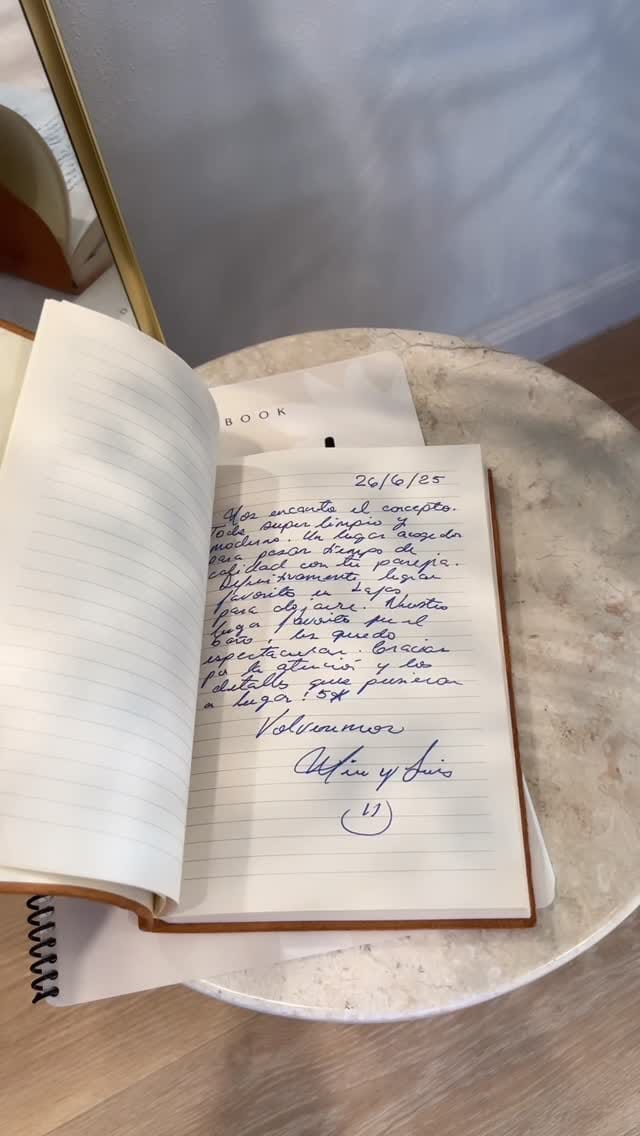 BOOK
26/6/25
Nos encanto el concepto.
Todo super limpio y
moderno. Un lugar acogedor
para pasar tiempo de
calidad con tu pareja.
Definitivamente lugar
favorito en Lajas
para alojarse. Nuestro
lugar favorito fue el
baño, les quedo
espectacular. Gracias
por la atención y los
detalles que pusieron
en lugar! 5*
Volveremos
y Luis